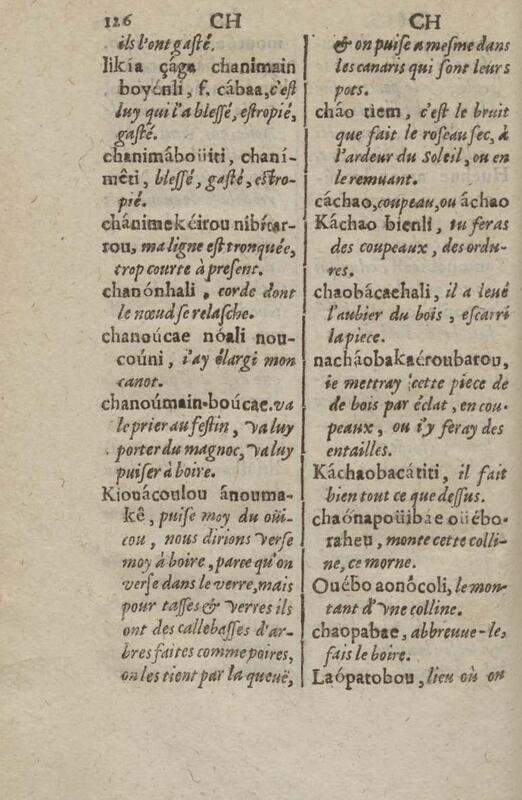 126 CH
ils l'ont gasté.
likía çága chanimain
boyénli, f. cábaa, c'est
luy qui l'a blessé, estropié,
gasté.
chanimáboüiti, chaní-
mêti, blessé, gasté, estro-
pié.
chánimekéirou nibítar-
rou, ma ligne est tronquée,
trop courte à present.
chanónhali, corde dont
le nœud se relasche.
chanoúcae nóali nou-
coúni, i'ay élargi mon
canot.
chanoúmain-boúcae. va
le prier au festin, va luy
porter du magnoc, va luy
puiser à boire.
Kiouácoulou ánouma-
kê, puise moy du oüi-
cou, nous dirions verse
moy à boire, parce qu'on
verse dans le verre, mais
pour tasses & verres ils
ont des callebasses d'ar-
bres faites comme poires,
on les tient par la queuë,
CH
& on puise a mesme dans
les canaris qui sont leurs
pots.
cháo tiem, c'est le bruit
que fait le roseau sec, à
l'ardeur du Soleil, ou en
le remuant.
cáchao, coupeau, ou áchao
Káchao bienli, tu feras
des coupeaux, des ordu-
res.
chaobácachali, il a leué
l'aubier du bois, escarri
la piece.
nacháobakaéroubatou,
ie mettray cette piece de
de bois par éclat, en cou-
peaux, ou i'y feray des
entailles.
Káchaobacátiti, il fait
bien tout ce que dessus.
chaónapoüibae oüébo-
raheu, monte cette colli-
ne, ce morne.
Ouébo aonócoli, le mon-
tant d'vne colline.
chaopabae, abbreuue-le,
fais le boire.
Laópatobou, lieu où on